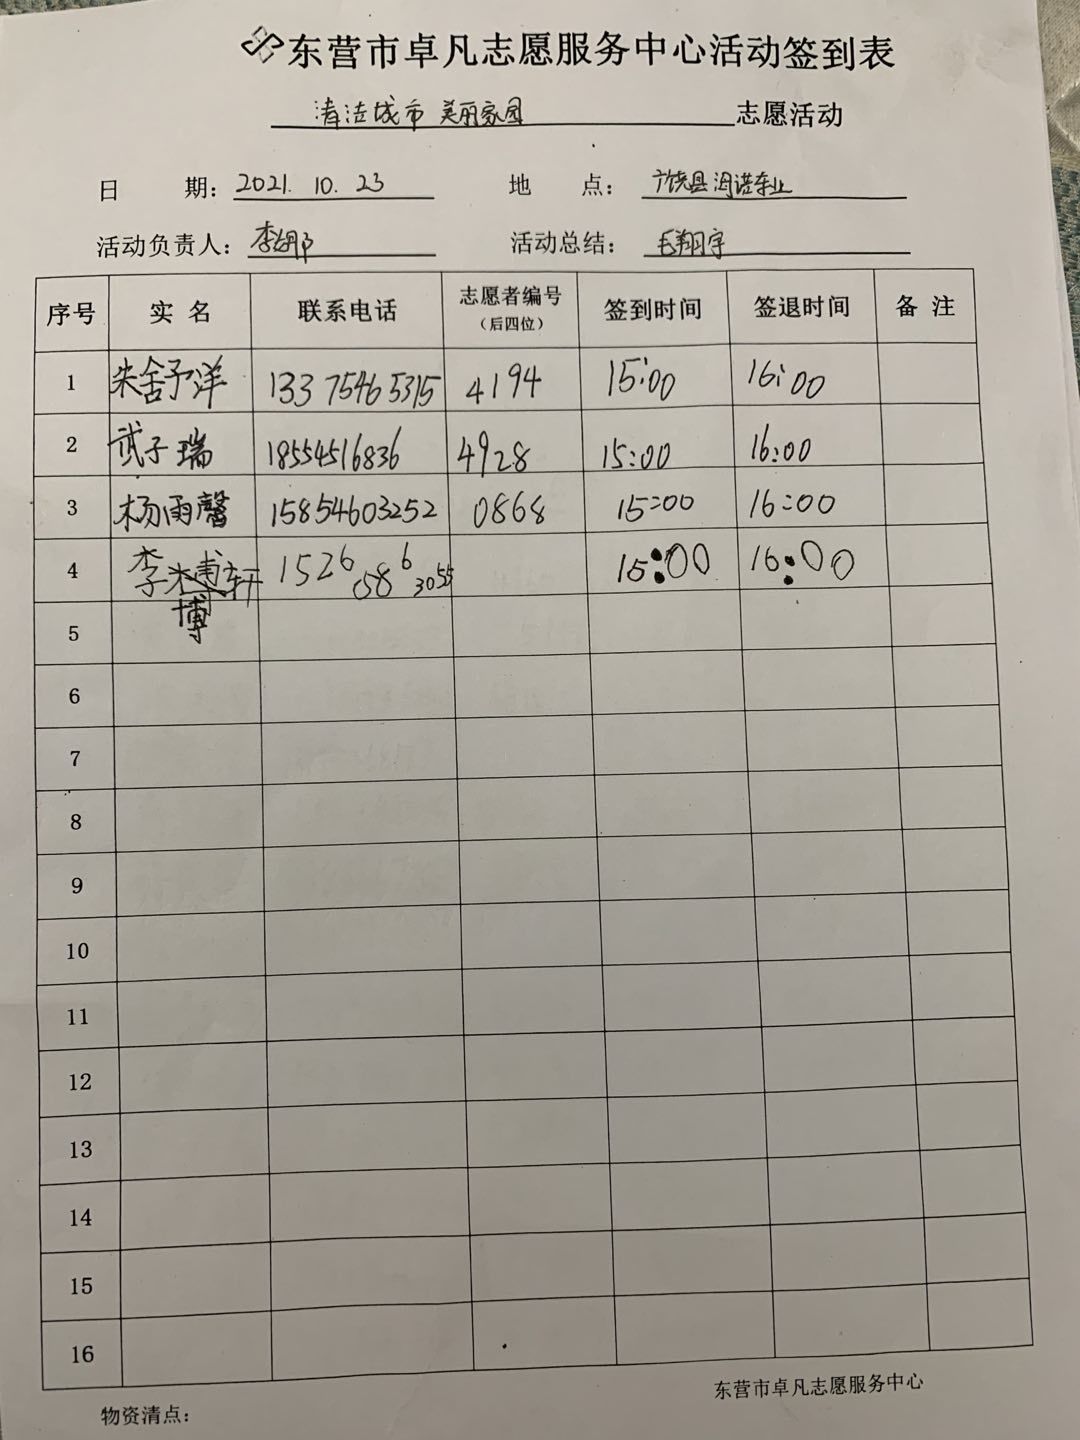 东营市卓凡志愿服务中心活动签到表
清洁城市 美丽家园 志愿活动
日 期：2021.10.23 地 点：广饶县
活动负责人：李 活动总结：毛翔宇
序号 实 名 联系电话 志愿者编号（后四位） 签到时间 签退时间 备 注
1 朱舍予洋 13375465315 4194 15:00 16:00
2 武子瑞 18554516836 4928 15:00 16:00
3 杨雨馨 15854603252 0868 15:00 16:00
4 李博轩 152605863055 15:00 16:00
5
6
7
8
9
10
11
12
13
14
15
16
东营市卓凡志愿服务中心
物资清点：